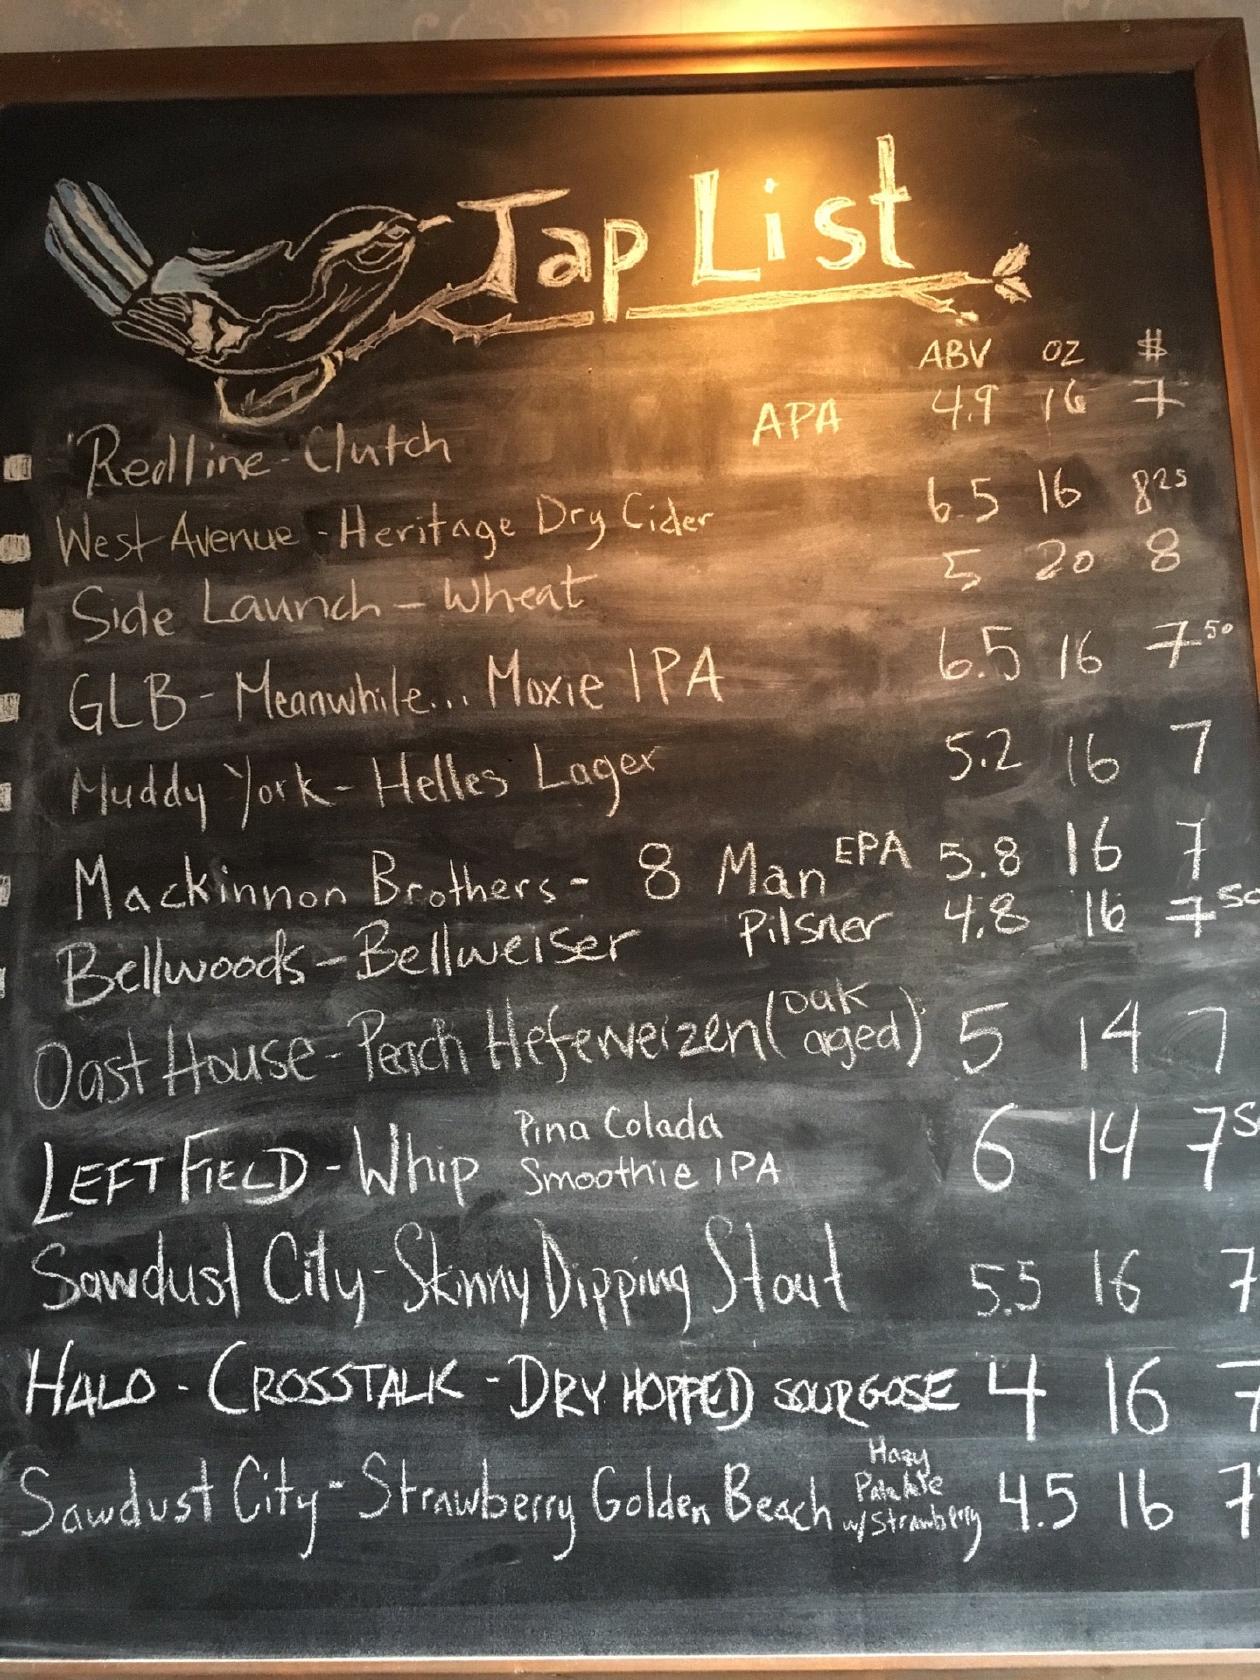 Tap List
ABV OZ $
Redline - Clutch APA 4.9 16 7
West Avenue - Heritage Dry Cider 6.5 16 8 25
Side Launch - Wheat 5 20 8
GLB - Meanwhile... Moxie IPA 6.5 16 7 50
Muddy York - Helles Lager 5.2 16 7
Mackinnon Brothers - 8 Man EPA 5.8 16 7
Bellwoods - Bellweiser Pilsner 4.8 16 7 50
Oast House - Peach Hefeweizen (oak aged) 5 14 7
LEFT FIELD - Whip Pina Colada Smoothie IPA 6 14 7
Sawdust City - Skinny Dipping Stout 5.5 16 7
HALO - CROSSTALK - DRY HOPPED SOUR GOSE 4 16 7
Sawdust City - Strawberry Golden Beach Hazy Pale Ale w/ Strawberry 4.5 16 7